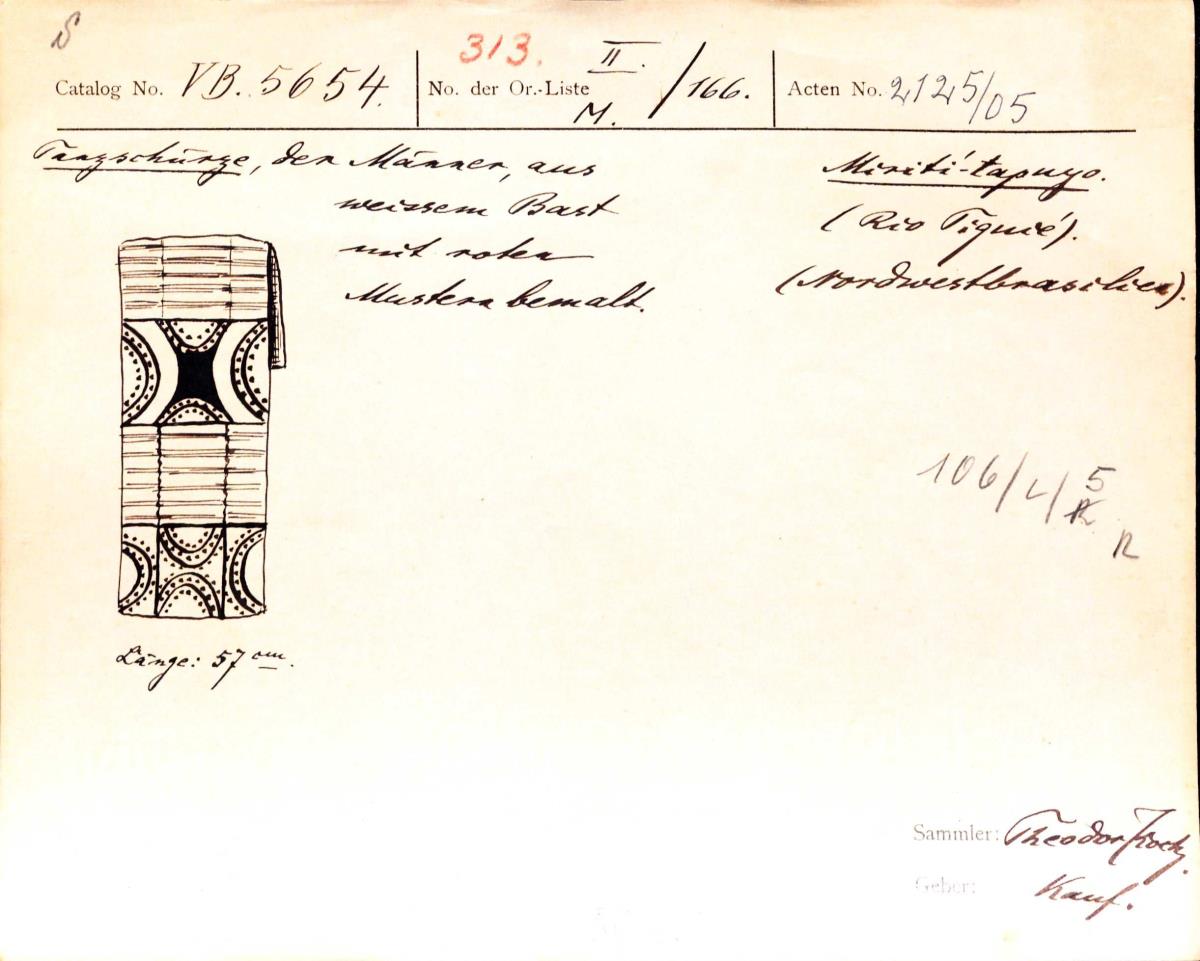 S
313.
Catalog No. VB. 5654. No. der Or.-Liste II. M. /166. Acten No. 2125/05
Tanzschürze, der Männer, aus
weissem Bast
mit roten
Mustern bemalt.
Mirití-tapuyo.
(Rio Tiquié).
(Nordwestbrasilien).
106/
5
R
Länge: 57 cm.
Sammler: Theodor Koch.
Geber: Kauf.